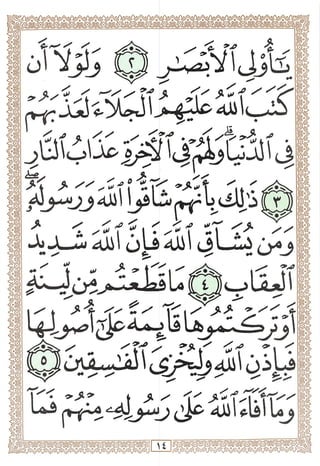 يَٰٓأُو۟لِى ٱلْأَبْصَٰرِ ٢ وَلَوْلَآ أَن
كَتَبَ ٱللَّهُ عَلَيْهِمُ ٱلْجَلَآءَ لَعَذَّبَهُمْ
فِى ٱلدُّنْيَا ۖ وَلَهُمْ فِى ٱلْءَاخِرَةِ عَذَابُ ٱلنَّارِ
٣ ذَٰلِكَ بِأَنَّهُمْ شَآقُّوا۟ ٱللَّهَ وَرَسُولَهُۥ ۖ
وَمَن يُشَآقِّ ٱللَّهَ فَإِنَّ ٱللَّهَ شَدِيدُ
ٱلْعِقَابِ ٤ مَا قَطَعْتُم مِّن لِّينَةٍ
أَوْ تَرَكْتُمُوهَا قَآئِمَةً عَلَىٰٓ أُصُولِهَا
فَبِإِذْنِ ٱللَّهِ وَلِيُخْزِىَ ٱلْفَٰسِقِينَ ٥
وَمَآ أَفَآءَ ٱللَّهُ عَلَىٰ رَسُولِهِۦ مِنْهُمْ فَمَآ
١٤